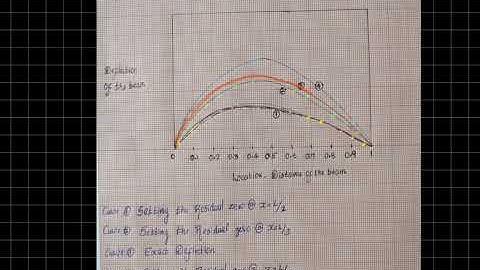 Deflection
of the beam
② ③ ④
①
0 0.1 0.2 0.3 0.4 0.5 0.6 0.7 0.8 0.9 1
Location - Distance of the beam
Curve ① Setting the Residual zero @ x=L/2
Curve ② Setting the Residual zero @ x=L/3
Curve ③ Exact Deflection
Setting the Residual zero @ x=L/